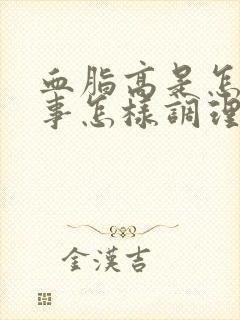 血脂高是怎
事怎樣調理
金漢吉